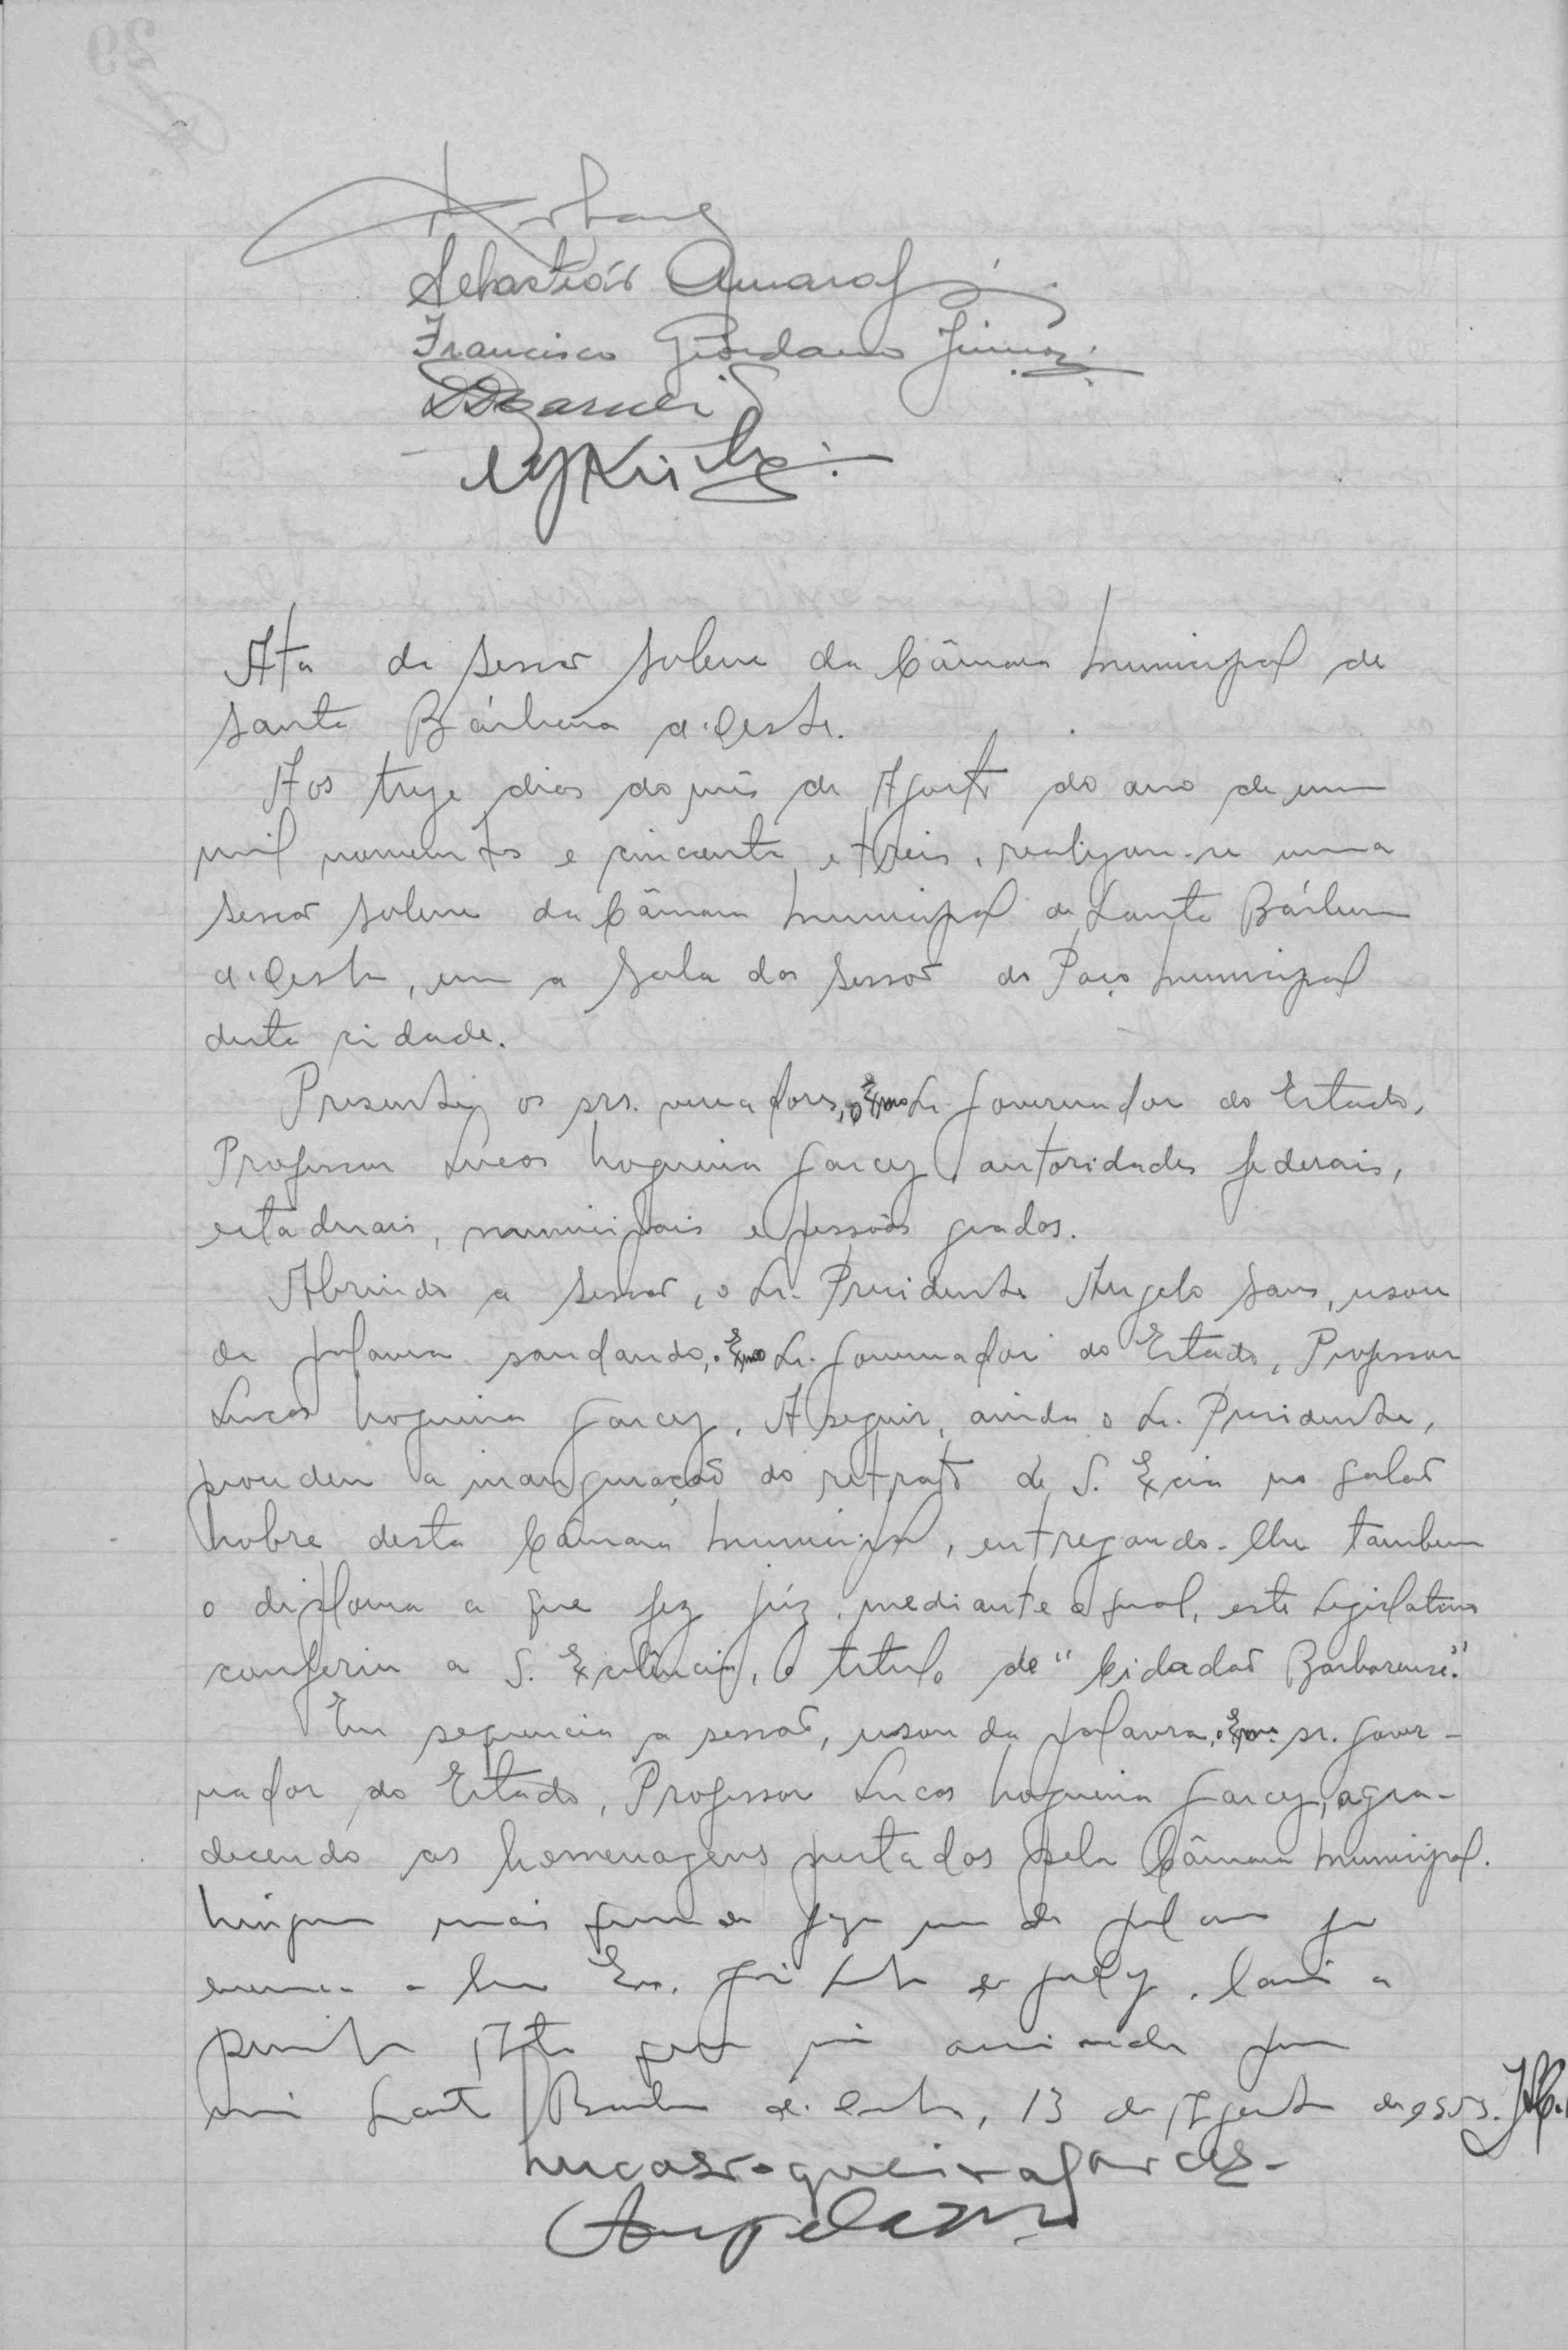 Sebastião Amaral
Francisco Giordano Júnior
Ata da sessão solene da Câmara Municipal de
Santa Bárbara d'Oeste.
Aos treze dias do mês de Agosto do ano de um
mil novecentos e cincoenta e treis, realizou-se uma
sessão solene da Câmara Municipal de Santa Bárbara
d'Oeste, em a sala das sessões do Paço Municipal
desta cidade.
Presentes os srs. vereadores, o Exmo Sr. Governador do Estado,
Professor Lucas Nogueira Garcez, autoridades federais,
estaduais, municipais e pessôas gradas.
Abrindo a sessão, o Sr. Presidente Angelo Sans, usou
da palavra saudando, o Exmo Sr. Governador do Estado, Professor
Lucas Nogueira Garcez. A seguir, ainda o Sr. Presidente,
procedeu a inauguração do retrato de S. Excia no salão
nobre desta Câmara Municipal, entregando-lhe tambem
o diploma a que fez júz, mediante o qual, este Legislativo
conferiu a S. Excelência, o titulo de "Cidadão Barbarense."
Em sequencia a sessão, usou da palavra, o Exmo. sr. Gover-
nador do Estado, Professor Lucas Nogueira Garcez, agra-
decendo as homenagens prestadas pela Câmara Municipal.
Ninguem mais da palavra
a
presente Ata que vai assinada por
mim Santa Barbara d'Oeste, 13 de Agosto de 953.
Lucas Nogueira Garcez
Angelo Sans